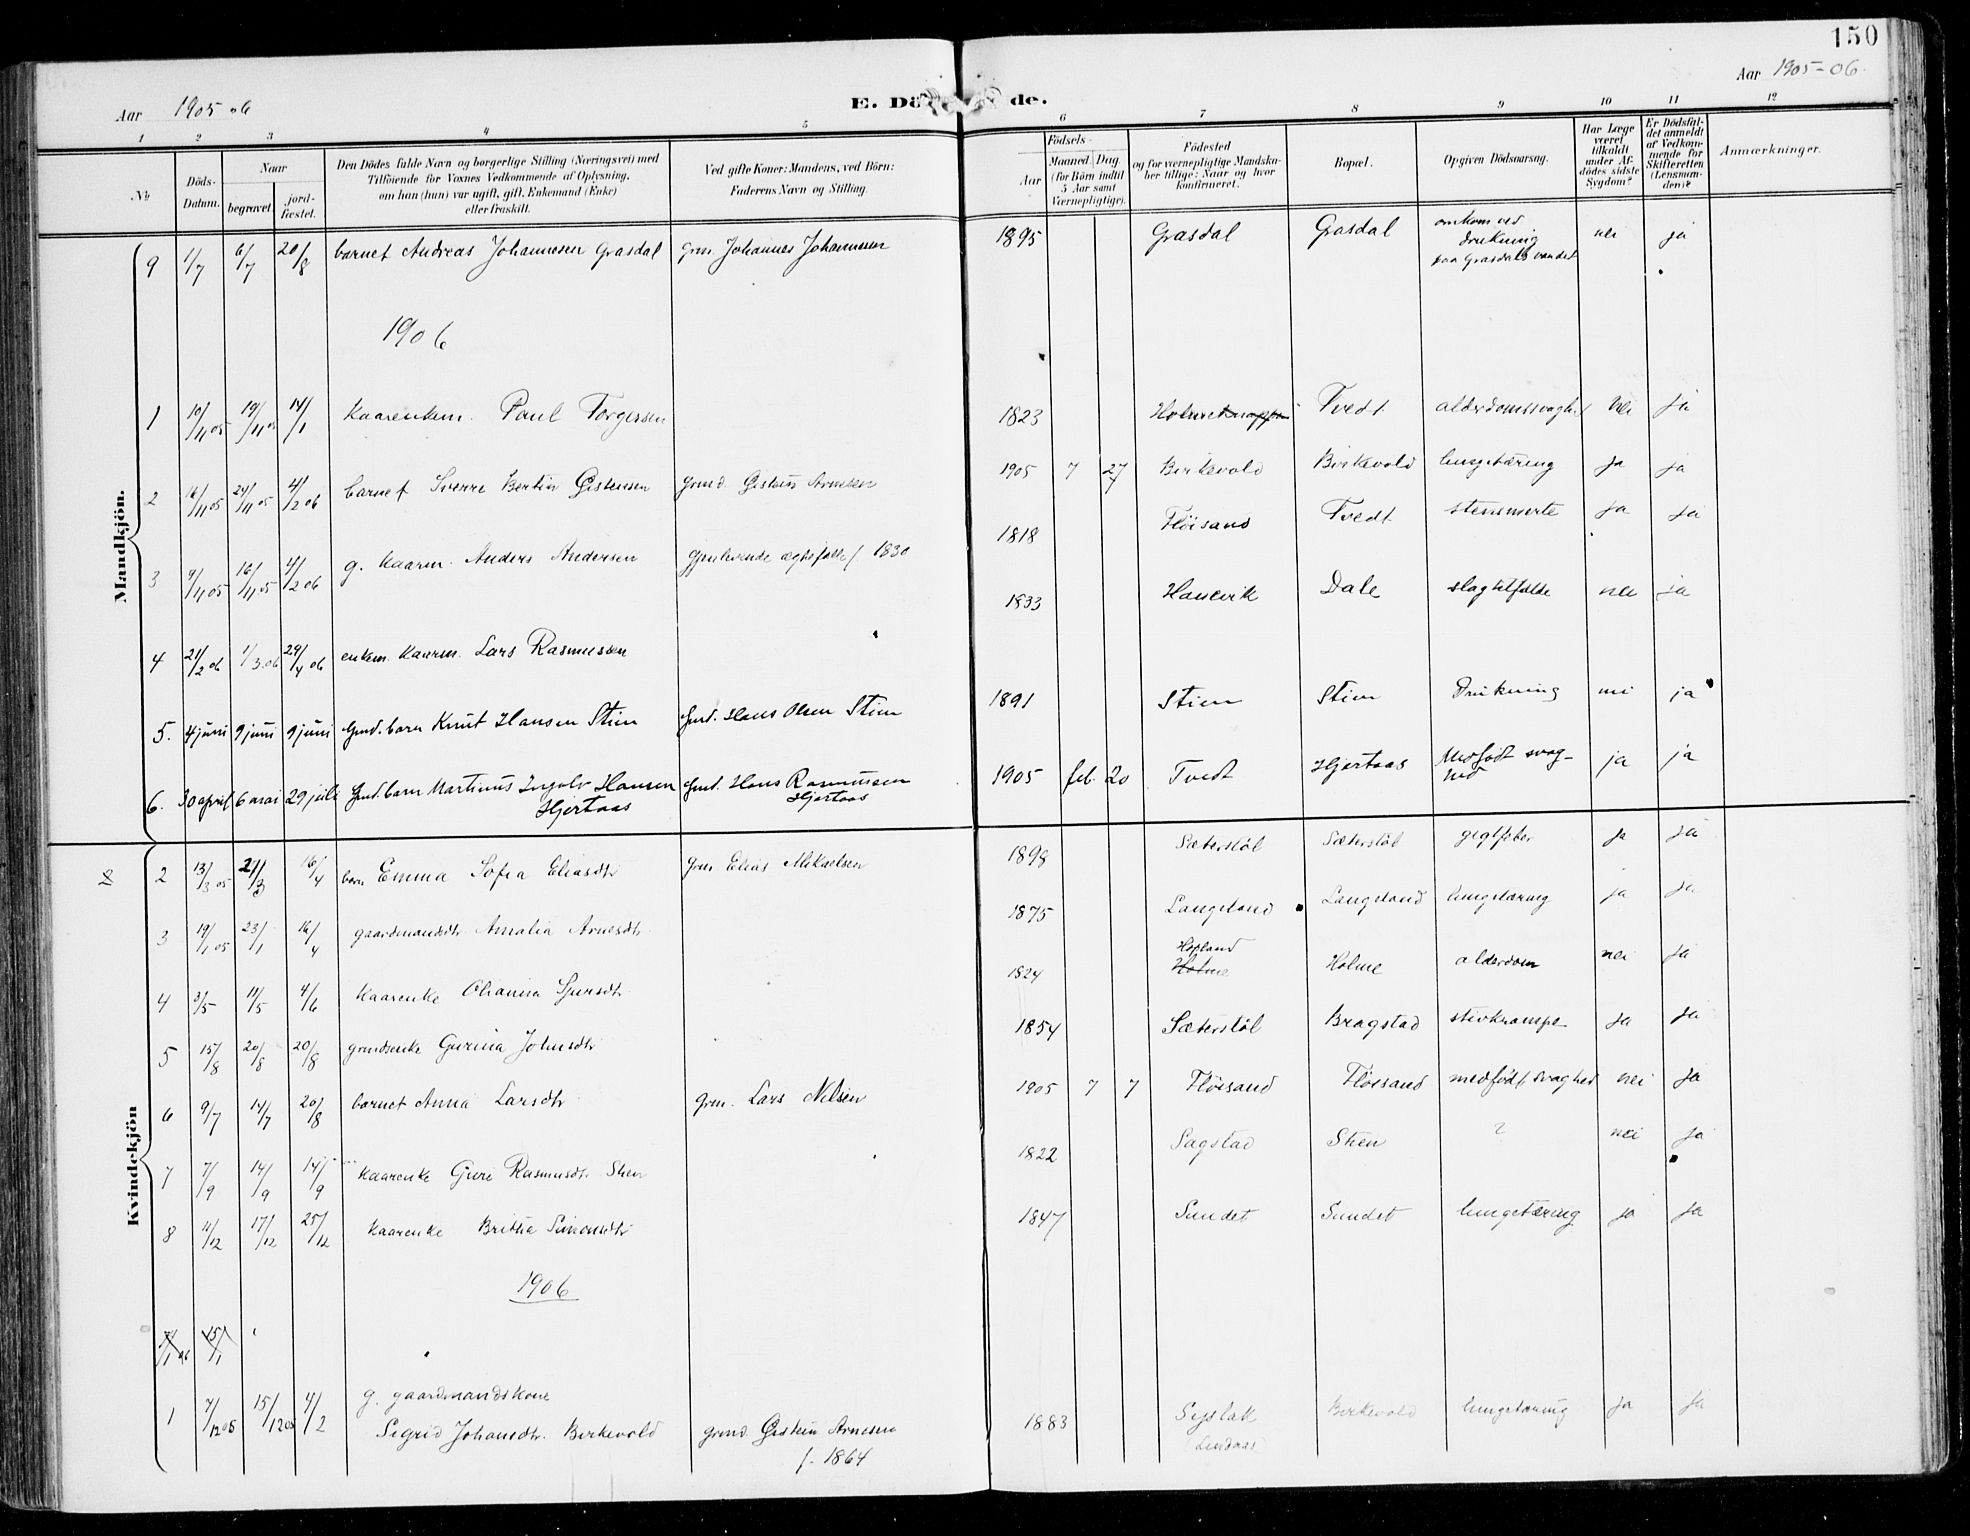 150
Aar 1905 06
E. Dö de.
Aar 1905-06.
1 2 3 4 5 6 7 8 9 10 11 12
No
Döds-Datum.
Naar
begravet.
jord-fæstet.
Den Dödes fulde Navn og borgerlige Stilling (Næringsvei) med
Tilföiende for Voxnes Vedkommende af Oplysning,
om han (hun) var ugift, gift, Enkemand (Enke)
eller fraskilt.
Ved gifte Koner: Mandens, ved Börn:
Faderens Navn og Stilling.
Födsels-
Aar
Maaned. Dag.
(for Börn indtil
5 Aar samt
Værnepligtige).
Födested
og for værnepligtige Mandska-
ber tillige: Naar og hvor
konfirmeret.
Bopæl.
Opgiven Dödsaarsag.
Har Læge
været
tilkaldt
under Af-
dödes sidste
Sygdom?
Er Dödsfal-
det anmeldt
af Vedkom-
mende for
Skifteretten
(Lensman-
den)?
Anmærkninger.
Mandkjön.
9 1/7 6/7 20/8 barnet Andreas Johannesen Grasdal gm. Johannes Johannesen 1895 Grasdal Grasdal omkom ved drukning paa Grasdalsvandet nei ja
1906
1 10/11 05 19/11 05 14/1 Kaarenkem. Paul Torgersen 1823 Tvedt alderdomssvaghed nei ja
2 16/11 05 24/11 05 4/2 06 barnet Sverre Bertin Gisteinsen grmd. Gistein Arnesen 1905 7 27 Birkevold Birkevold lungetæring ja ja
3 9/11 05 16/11 05 4/2 06 g. Kaarm. Anders Andersen Gjenlevende ægtefælle f. 1830 1818 Fløisand Tvedt stensmerte ja ja
4 21/2 06 1/3 06 29/4 06 enkem. Kaarm. Lars Rasmussen 1833 Hanevik Dale slagtilfælde nei ja
5. 4 juni 9 juni 9 juni Gmd. barn Knut Hansen Stien Gmd. Hans Olsen Stien 1891 Stien Stien Drukning nei ja
6. 30 april 6 mai 29 juli Gmd. barn Martinus Ingolv Hansen Hjertaas Gmd. Hans Rasmussen Hjertaas 1905 feb. 20 Tvedt Hjertaas Medfødt svaghed ja ja
Kvindekjön
2 13/3 05 21/3 16/4 barn Emma Sofia Eliasdtr gm. Elias Mikaelsen 1898 Sæterstøl Sæterstøl gigtfeber ja ja
3 19/1 05 23/1 16/4 gaardmandsdtr. Amalia Arnesdtr. 1875 Langeland Langeland lungetæring ja ja
4 3/5 11/5 4/6 Kaarenke Olianna Sjursdtr. 1824 Hopland Holme Holme alderdom nei ja
5 15/8 20/8 20/8 grmdsenke Gurina Johnsdtr 1854 Sæterstøl Bragstad stivkrampe ja ja
6 9/7 14/7 20/8 barnet Anna Larsdtr grm. Lars Nilsen 1905 7 7 Fløisand Fløisand medfødt svaghed nei ja
7 7/9 14/9 14/9 Kaarenke Guri Rasmusdtr. Stien 1822 Sagstad Stien ? nei ja
8 11/12 17/12 25/12 Kaarenke Britha Simonsdtr 1847 Sundet Sundet lungetæring ja ja
1906
15/1
1 7/12 05 15/12 05 4/2 g. gaardmandskone
Sigrid Johansdtr. Birkevold grmd. Gistein Arnesen f. 1864 1883 Seislak (Lindaas) Birkevold lungetæring ja ja